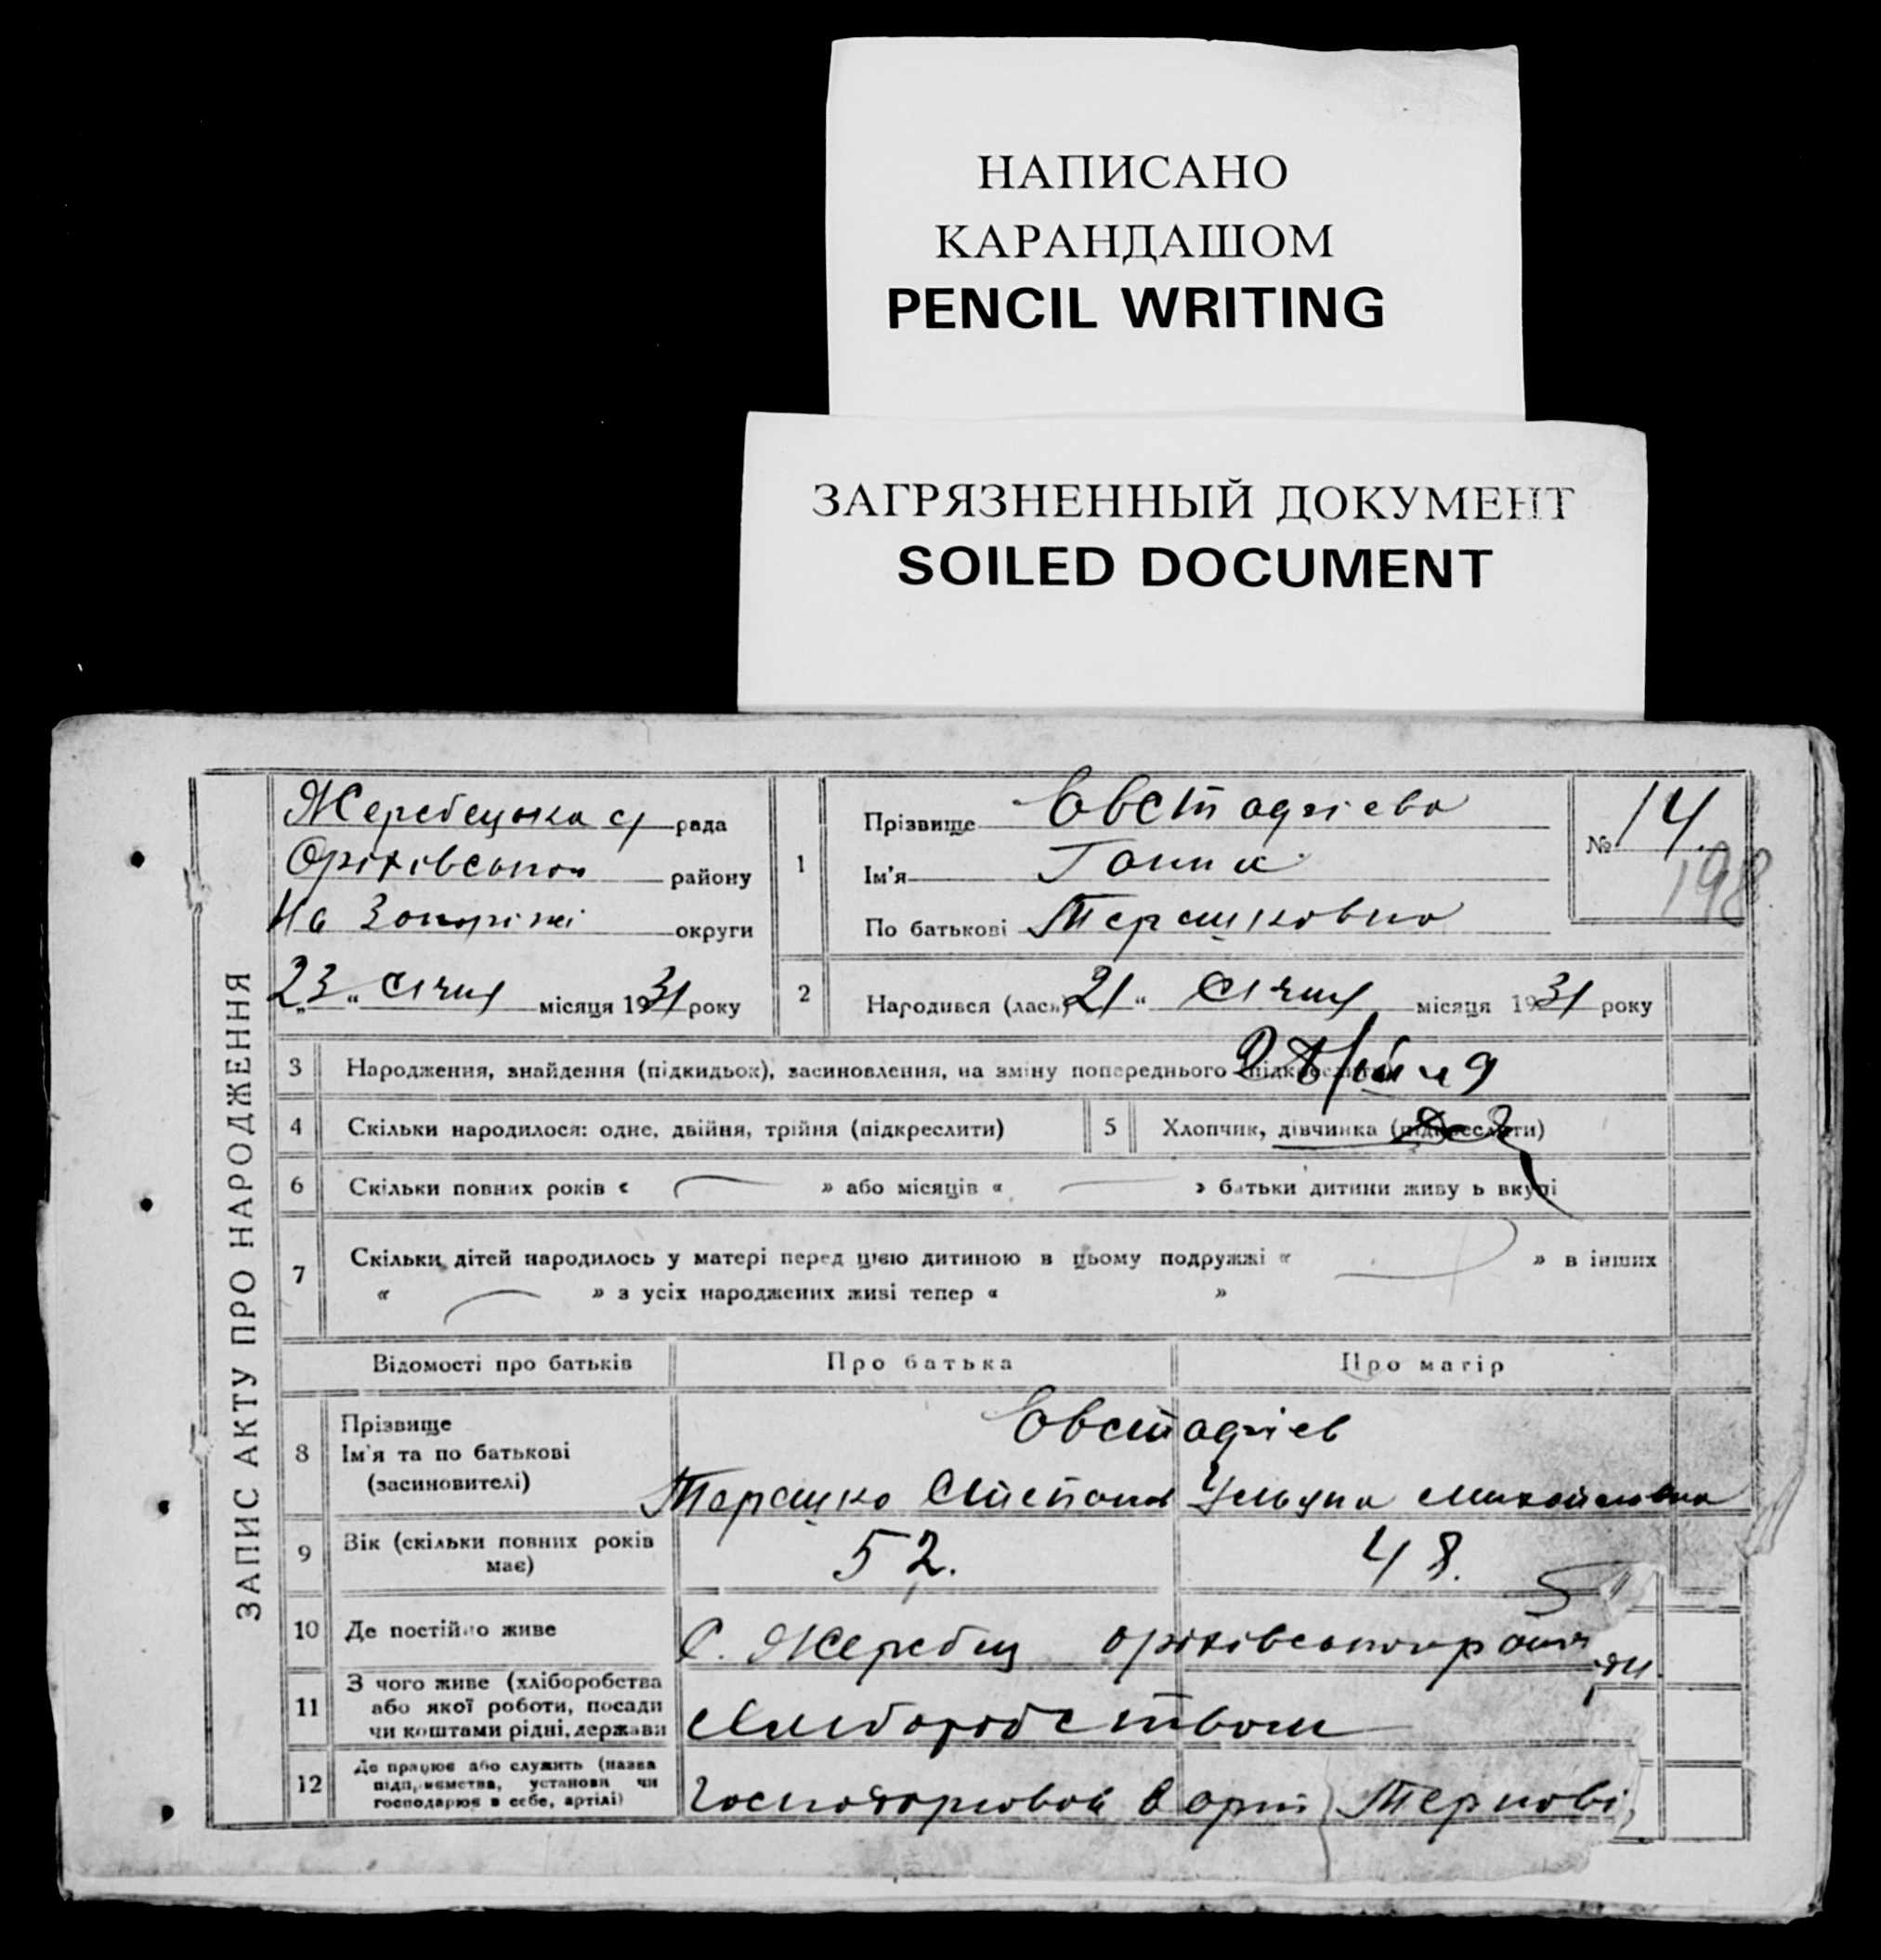 НАПИСАНО
КАРАНДАШОМ
PENCIL WRITING
ЗАГРЯЗНЕННЫЙ ДОКУМЕНТ
SOILED DOCUMENT
ЗАПИС АКТУ ПРО НАРОДЖЕННЯ
Жеребецька с/ рада
району
На Запоріжі округи
„23“ січня місяця 1931 року
1
Прізвище Євстафієва
Ім'я Ганна
По батькові
№ 14.
198
2 Народився (лась) 21 “ січня місяця 1931 року
3 Народження, знайдення (підкидьок), засиновлення, на зміну попереднього
4 Скільки народилося: одне, двійня, трійня (підкреслити)
5 Хлопчик, дівчинка (підкреслити)
6 Скільки повних років « » або місяців « » батьки дитини живуть вкупі
7 Скільки дітей народилось у матері перед цією дитиною в цьому подружжі « » в інших
« » з усіх народжених живі тепер « »
Відомості про батьків Про батька Про матір
8 Прізвище
Ім'я та по батькові
(засиновителі)
Євстафієв
Степан Михайловна
9 Вік (скільки повних років має) 52. 48.
10 Де постійно живе С. Жеребец
11 З чого живе (хліборобства
або якої роботи, посади
чи коштами рідні, держави
Хлиборобством
12 Де працює або служить (назва
підприємства, установи чи
господарює в себе, артілі)
в арт